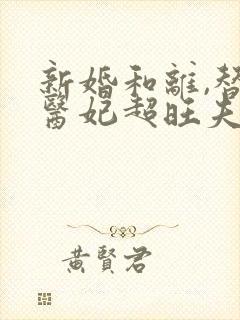 新婚和離,替
醫妃超旺夫
黃賢君